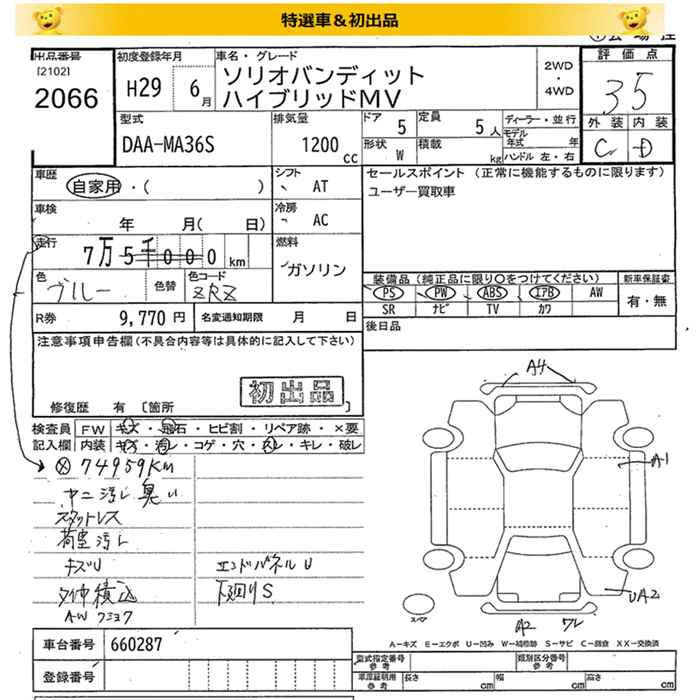 特選車＆初出品
出品番号
[2102]
2066
初度登録年月
H29 6月
車名・グレード
ソリオバンディット
ハイブリッドMV
2WD
・
4WD
評価点
3.5
外装 内装
C D
型式
DAA-MA36S
排気量
1200 cc
ドア 5
定員 5人
形状 W
積載 kg
ディーラー・並行
モデル
年式 年
ハンドル 左・右
車歴
自家用・( )
シフト
AT
セールスポイント (正常に機能するものに限ります)
ユーザー買取車
車検
年 月( 日)
冷房
AC
走行
7万5千000 km
燃料
ガソリン
色
ブルー
色替
色コード
ZRZ
装備品 (純正品に限り○をつけてください)
PS PW ABS エアB AW
SR ナビ TV カワ
新車保証書
有・無
R券
9,770 円
名変通知期限 月 日
後日品
注意事項申告欄(不具合内容等は具体的に記入して下さい)
初出品
修復歴 有 [箇所 ]
検査員
記入欄
FW キズ・飛石・ヒビ割・リペア跡・×要
内装 キズ・汚レ・コゲ・穴・スレ・キレ・破レ
74959Km
中ニ汚レ 臭い
スタットレス
荷室汚レ
キズU
タイヤ積込
AWクミヨウ
エンドパネルU
下廻りS
A4
A1
UA2
A2 ワレ
スペア
A－キズ E－エクボ U－凹み W－補修跡 S－サビ C－腐食 XX－交換済
車台番号
660287
登録番号
型式指定番号
参考
類別区分番号
参考
車庫証明用
参考
長さ cm
幅 cm
高さ cm